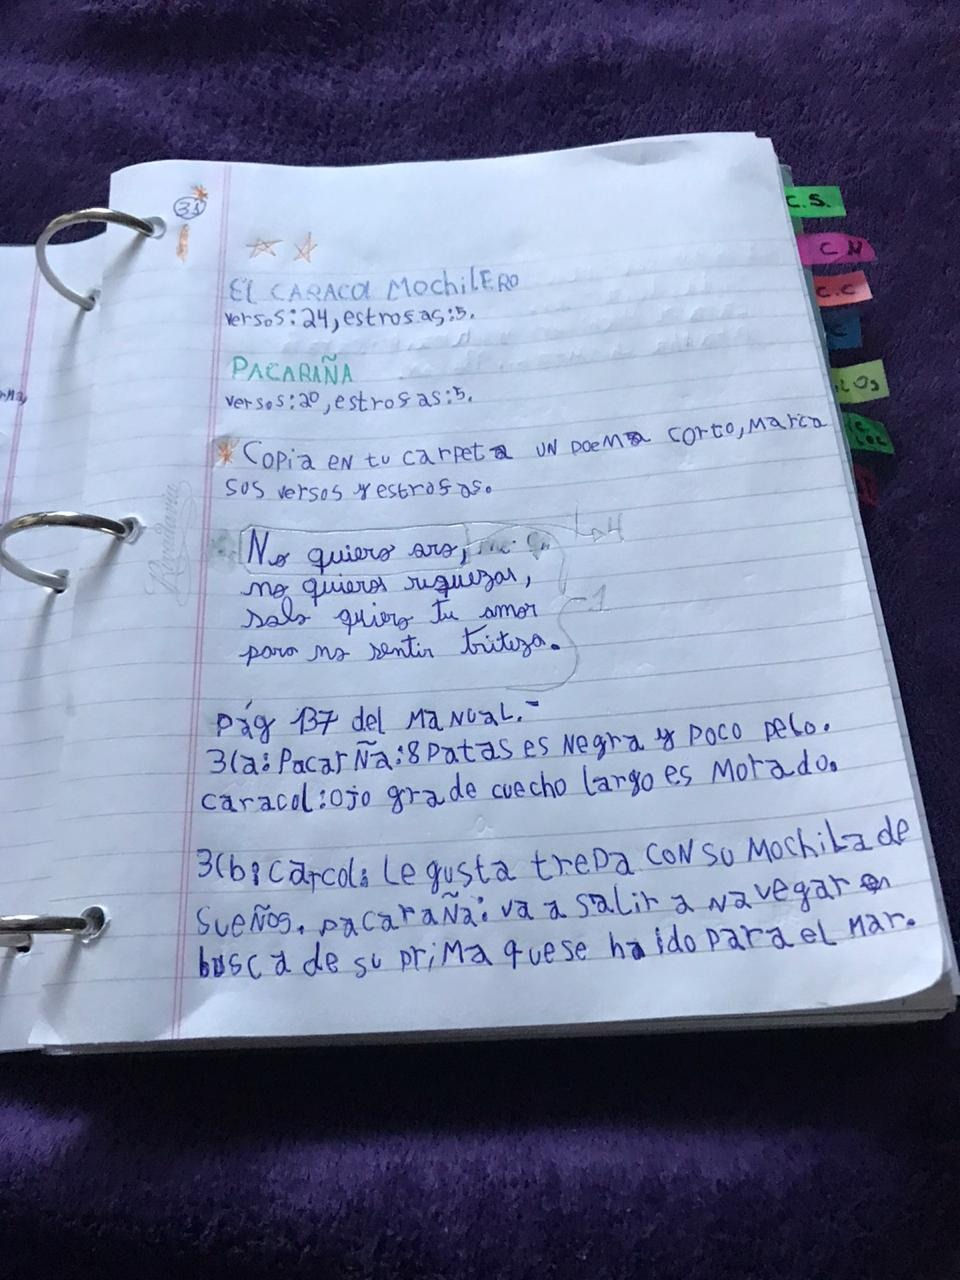 31
El CARACOL MochilERO
versos:24, estrofas:5.
PACARAÑA
versos:20, estrofas:5.
Copia en tu carpeta un poema corto, marca
sus versos y estrofas.
No quiero oro,
4
no quieros riquezas,
solo quiero tu amor
1
para no sentir triteza.
Pág 137 del MANUAL.-
3(a: Pacarña: 8 patas es negra y poco pelo.
caracol: ojo grade cuecho largo es morado.
3(b: carcol: Le gusta trepa con su mochila de
sueños. pacaraña: va a salir a navegar en
busca de su prima que se ha ido para el mar.
Rivadavia
C.S.
C N
C.C